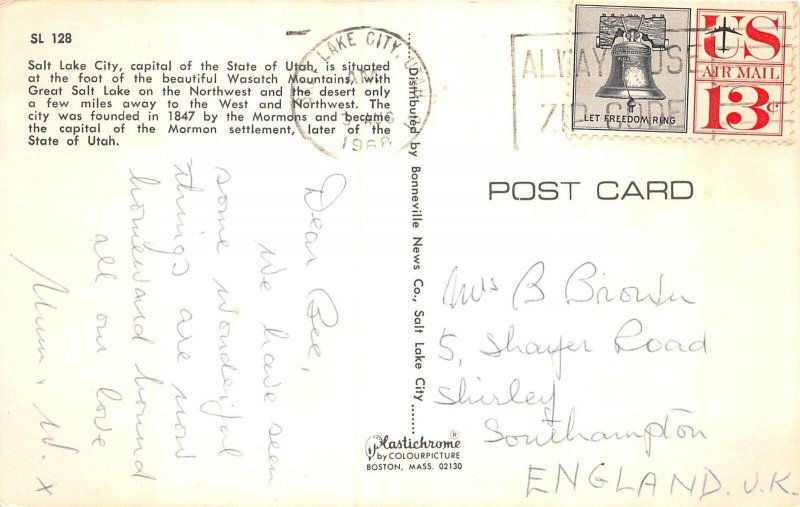 SL 128
Salt Lake City, capital of the State of Utah, is situated
at the foot of the beautiful Wasatch Mountains, with
Great Salt Lake on the Northwest and the desert only
a few miles away to the West and Northwest. The
city was founded in 1847 by the Mormons and became
the capital of the Mormon settlement, later of the
State of Utah.
LAKE CITY, UTAH
AUG
1968
ALWAYS USE
ZIP CODE
LET FREEDOM RING
US
AIR MAIL
13¢
Distributed by Bonneville News Co., Salt Lake City
POST CARD
Dear Bee,
We have seen
some wonderful
things are now
homeward bound
all our love
Mum & W. x
Mrs B Brown
5, Shayer Road
Shirley
Southampton
ENGLAND. U.K.
Plastichrome®
by COLOURPICTURE
BOSTON, MASS. 02130